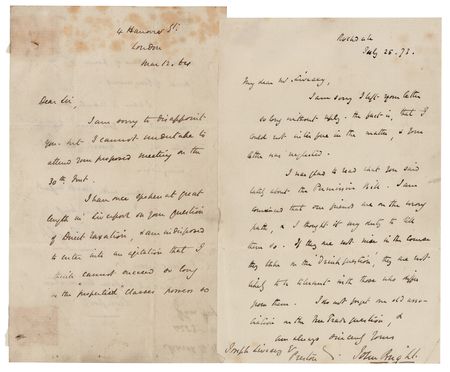 4 Hanover St.
London
Mar 12. 64
Dear Sir,
I am sorry to disappoint
you - but I cannot undertake to
attend your proposed meeting on the
30th Inst.
I have once spoken at great
length in Liverpool on your question
of Direct Taxation, & am indisposed
to enter into an agitation that I
think cannot succeed so long
as the "propertied" classes possess so
Rochdale
July 25. 73.
My dear Mr. Livesey
I am sorry I left your letter
so long without reply. The fact is, that I
could not interfere in the matter, & your
letter was neglected.
I was glad to read what you said
lately about the Permissive Bill. I am
convinced that our friends are on the wrong
path, & I thought it my duty to tell
them so. If they are not wise in the course
they take on the "Drink question", they are not
likely to be tolerant with those who differ
from them. I do not forget our old asso-
ciation on the Free Trade question, &
am always sincerely yours
Joseph Livesey Esq
Preston
John Bright.